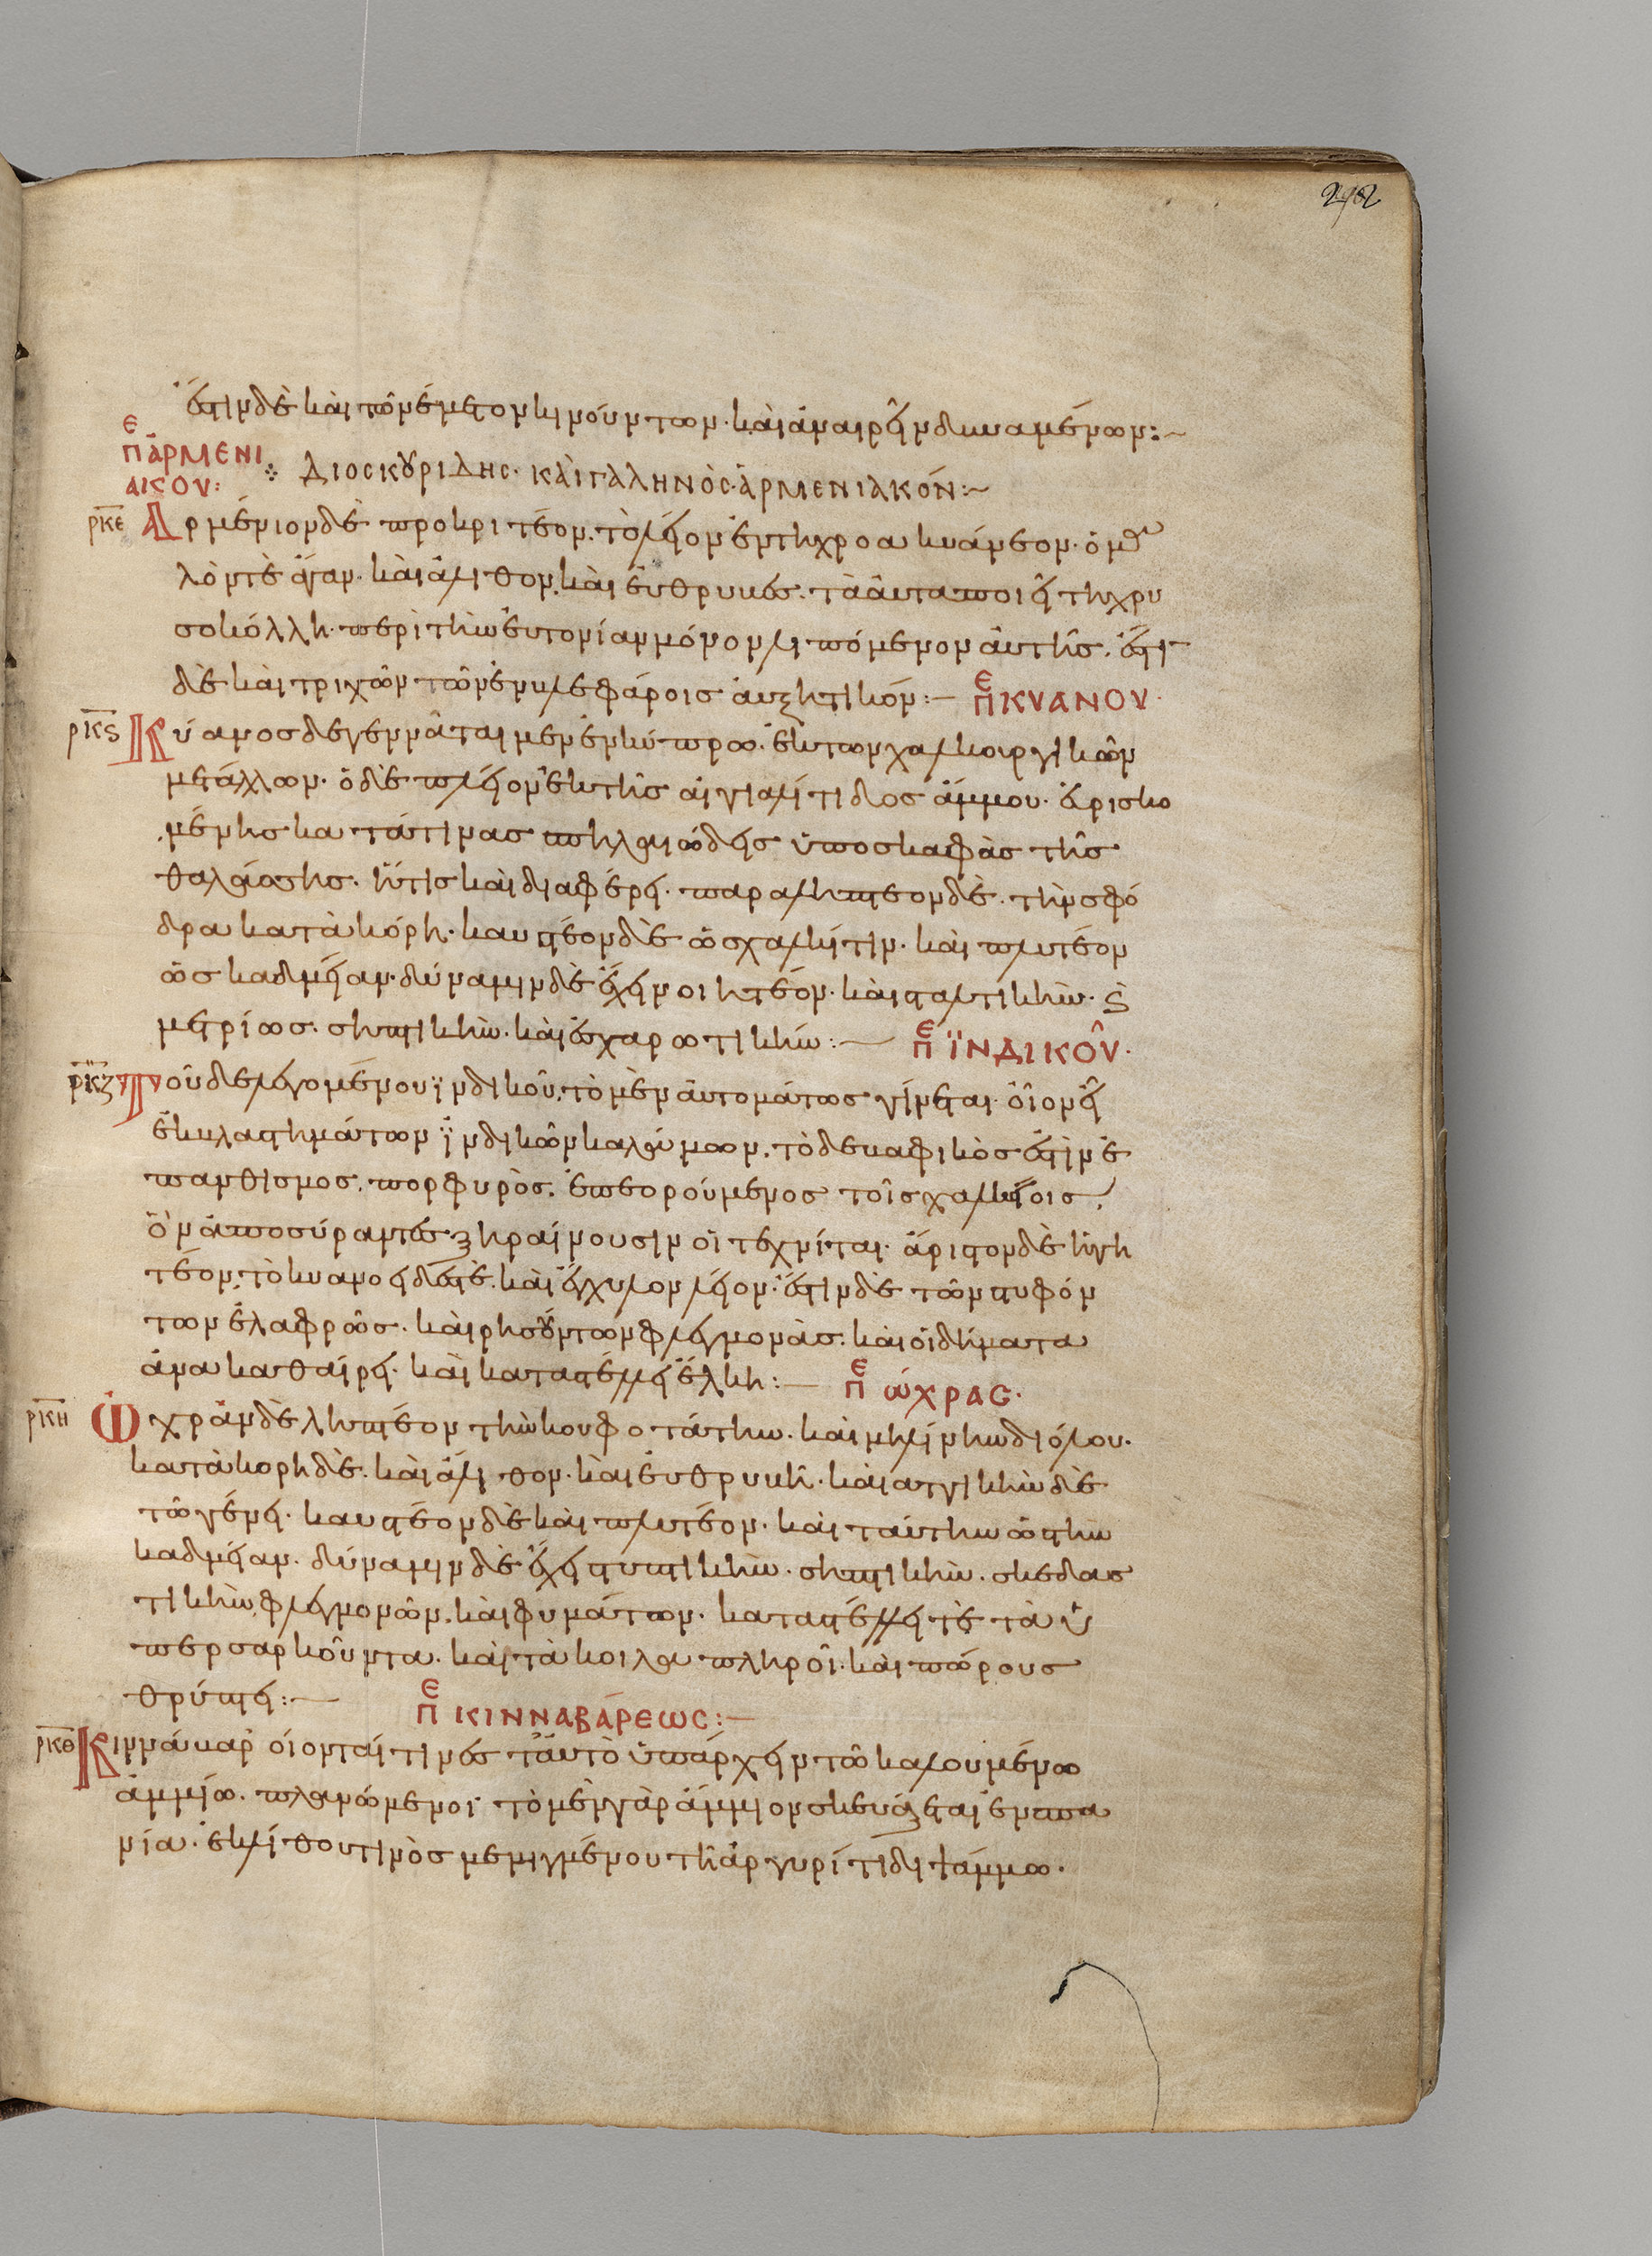 ἔστιν δὲ καὶ τῶν ἔμετον κινούντων· καὶ ἀναιρεῖν δυναμένων:~
ΕΠ ἈΡΜΕΝΙ
ΑΙΚΟΥ:
ΔΙΟCΚΟΥΡΙΔΗC· ΚΑῚ ΓΑΛΗΝῸC· ἈΡΜΕΝΙΑΚΌΝ:~
ρκε Ἀρμένιον δὲ προκριτέον. τὸ λεῖον ἐν τῆ χρόα κυάνεον· ὁμα
λόν τε ἄγαν· καὶ ἄλιθον, καὶ εὐθρυκές. τὰ αὐτὰ ποιεῖ τῆ χρυ
σοκόλλη· περὶ τὴν εὐτονίαν μόνον λιπόμενον αὐτῆς. ἔστι
δὲ καὶ τριχῶν τῶν ἐν βλεφάροις αὐξητικόν:— ΕΠ ΚΥΑΝΟΥ·
ρκϛ Κύανος δε γεννᾶται μεν ἐν κύπρω. ἐκ των χαλκουργικῶν
μετάλλων· ὁ δὲ πλεῖον ἐκ τῆς αἰγιαλίτιδος ἄμμου· εὑρισκο
μένης κατά τινας σπηλαιώδεις ὑποσκαφὰς τῆς
θαλάσσης. ἥτις καὶ διαφέρει. παραληπτεον δὲ. τὴν σφό
δρα κατὰ κόρη· καυστέον δὲ ὡς χαλκίτιν. καὶ πλυτέον
ὡς καδμείαν· δύναμιν δὲ ἔχειν οιητέον· καὶ σταλτικὴν· ϛ
μετρίως. σηπτικὴν· καὶ ἐσχαρωτικήν:— ΕΠ ἸΝΔΙΚΟΥ͂·
ρκζ Τοῦ δε λεγομένου ϊνδικοῦ, τὸ μὲν αὐτομάτως γίνεται· οἷον εἶ
ἔκβλαστημάτων ϊνδικῶν καλάμων, τὸ δε βαφικὸς ἐστὶν ἐ
πανθισμος. πορφυρὸς. ἐπεορούμενος τοῖς χαλκείοις,
ὃν ἀποσύραντες ξηραίνουσιν οἱ τεχνίται· ἄριστον δὲ ἡγη
τέον, τὸ κυανοειδές τὲ. καὶ ἔγχυλον λεῖον· ἔστιν δὲ τῶν στυφόν
των ἐλαφρῶς. καὶ ρησσόντων φλεγμονὰς. καὶ οἰδήματα
ἀνακαθαίρει· καὶ καταστέλλει ἕλκη:— ΕΠ ὤΧΡΑC·
ρκη Ὤχραν δὲ ληπτέον τὴν κουφοτάτην. καὶ μηλίνην διόλου.
κατακορῆ δὲ. καὶ ἄλιθον. καὶ εὐθρυκῆ. καὶ ἀττικὴν δὲ
τῶ γένει· καυστέον δὲ καὶ πλυτέον· καὶ ταύτην ὡς την
καδμείαν. δύναμιν δὲ ἔχει στυπτικὴν. σηπτικὴν. σκεδασ
τικὴν, φλεγμονῶν, καὶ φυμάτων. καταστέλλει τὲ τὰ ὑ
περσαρκοῦντα. καὶ τὰ κοιλα πληροῖ· καὶ πώρους
θρύπτει:— ΕΠ ΚΙΝΝΑΒΆΡΕΩC:—
ρκθ Κιννάβαρ οἴονταί τινές ταὐτὸ ὑπάρχειν τῶ καλουμένω
ἀμμίω. πλανώμενοι τὸ μὲν γὰρ ἄμμιον σκευάζεται ἐν σπα
νία. ἐκ λίθου τινὸς μεμιγμένου τῆ ἀργυρίτιδι ψάμμω.